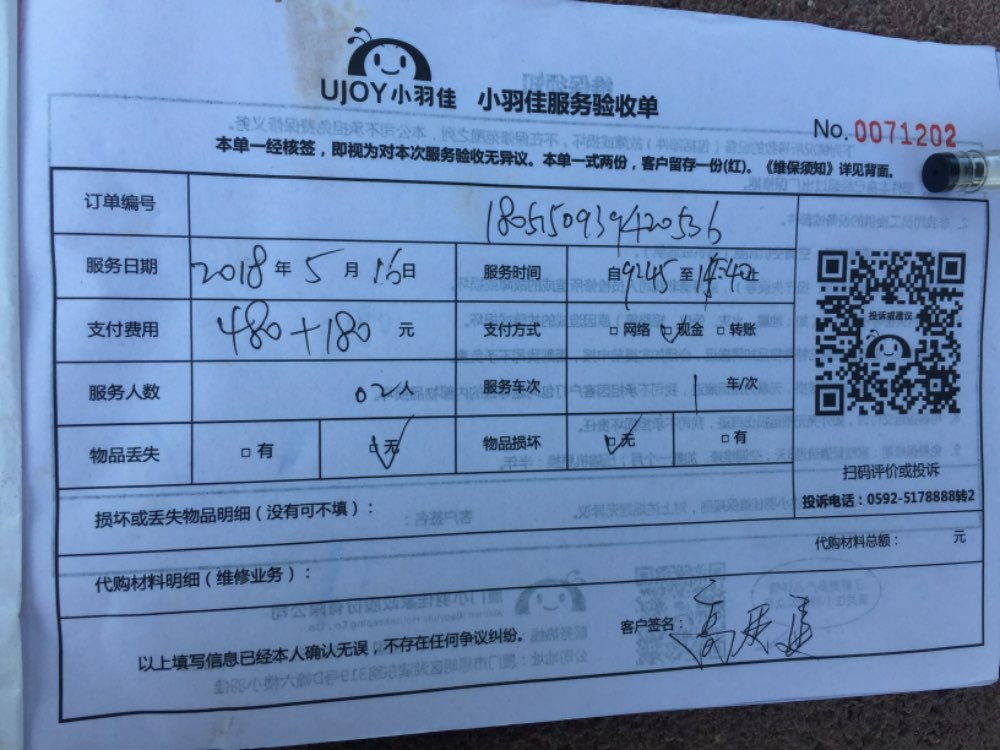 UJOY小羽佳 小羽佳服务验收单
No.0071202
本单一经核签，即视为对本次服务验收无异议。本单一式两份，客户留存一份(红)。《维保须知》详见背面。
订单编号 1805150939420536
服务日期 2018年5月16日 服务时间 自9:45至
支付费用 480+180元 支付方式 □网络 □现金 □转账
服务人数 02人 服务车次 1车/次
物品丢失 □有 □无 物品损坏 □无 □有
投诉或建议
扫码评价或投诉
投诉电话：0592-5178888转2
损坏或丢失物品明细（没有可不填）：
代购材料总额： 元
代购材料明细（维修业务）：
客户签名：
以上填写信息已经本人确认无误，不存在任何争议纠纷。